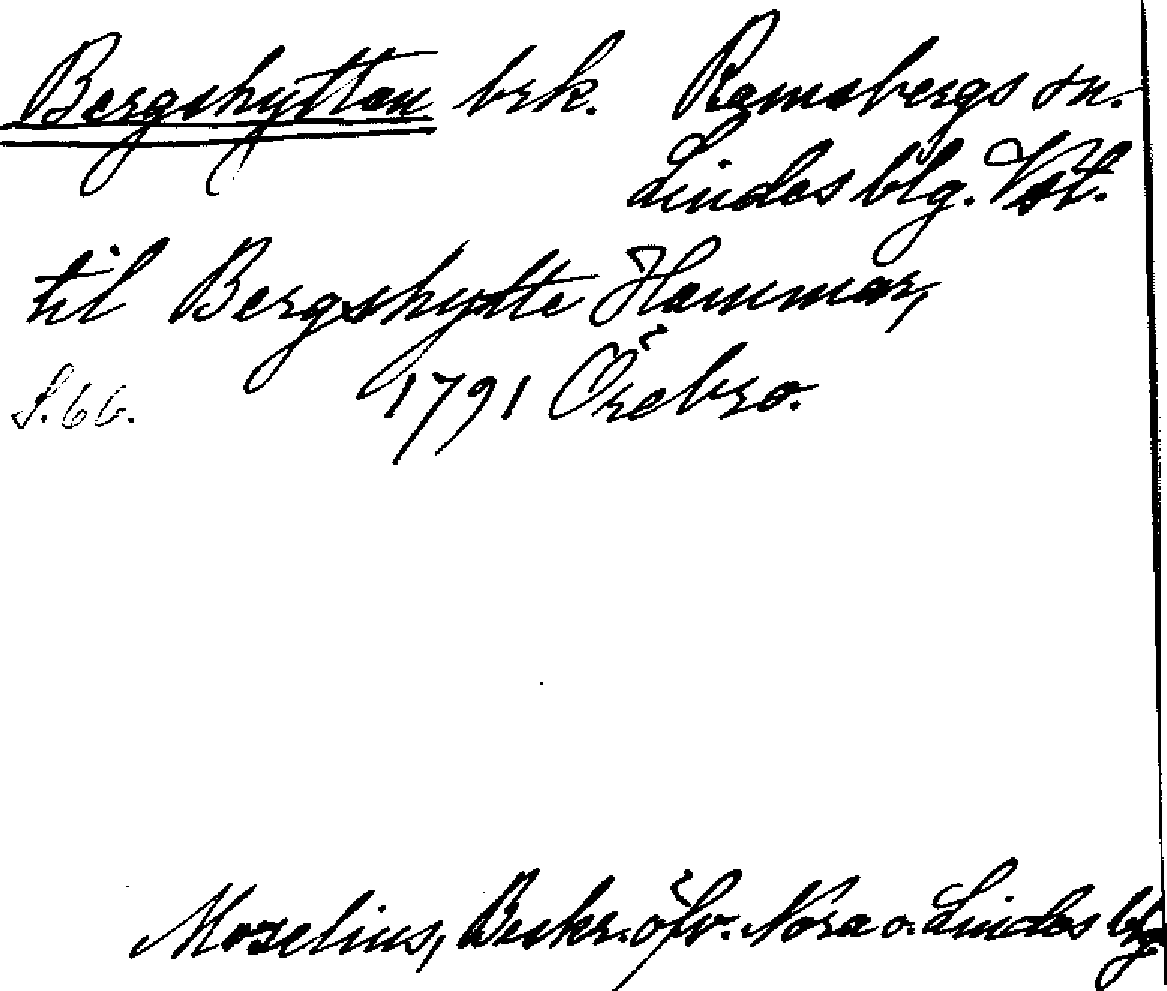 Bergshyttan brk. Ramsbergs sn.
Lindes blg. Vstl.
til Bergshytte Hammar,
S. 66. 1791 Örebro.
Morelius, Beskr. öfv. Nora o. Lindes blg